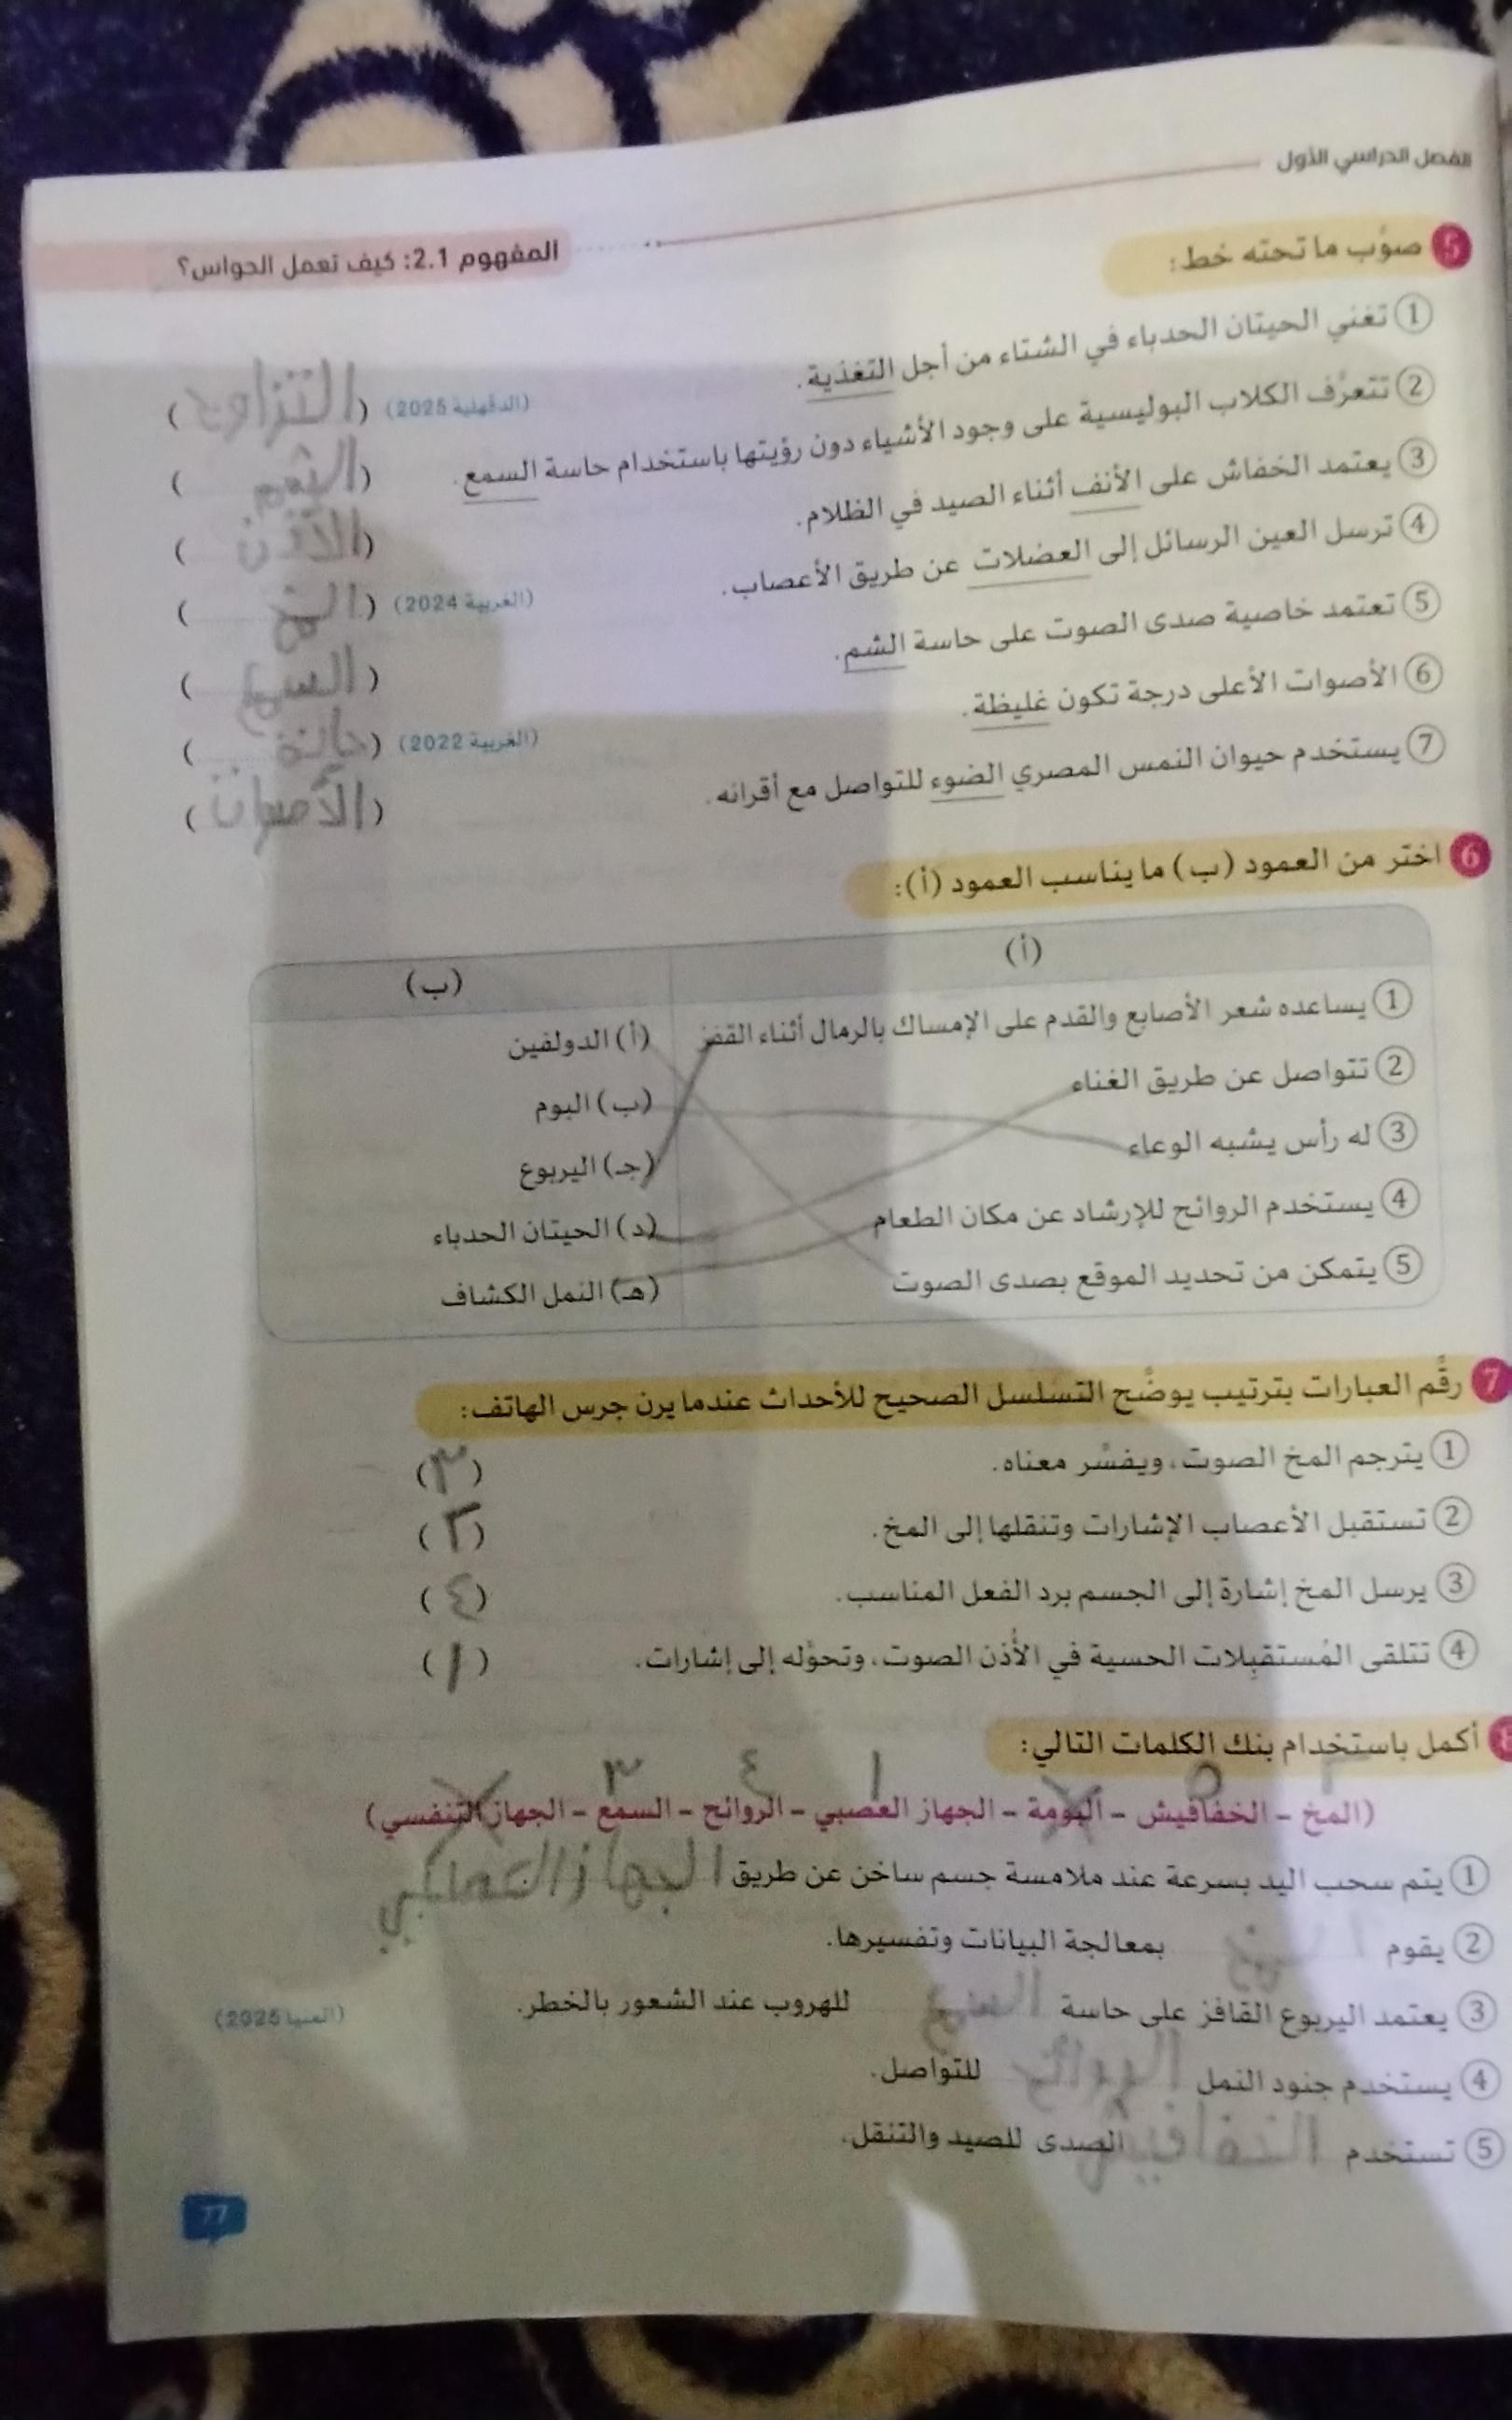 الفصل الدراسي الأول
المفهوم 2.1: كيف تعمل الحواس؟
5 صوّب ما تحته خط:
1 تغني الحيتان الحدباء في الشتاء من أجل التغذية. (الدقهلية 2025) (التزاوج)
2 تتعرّف الكلاب البوليسية على وجود الأشياء دون رؤيتها باستخدام حاسة السمع. (الشم)
3 يعتمد الخفاش على الأنف أثناء الصيد في الظلام. (الأذن)
4 ترسل العين الرسائل إلى العضلات عن طريق الأعصاب. (الغربية 2024) (المخ)
5 تعتمد خاصية صدى الصوت على حاسة الشم. (السمع)
6 الأصوات الأعلى درجة تكون غليظة. (الغربية 2022) (حادة)
7 يستخدم حيوان النمس المصري الضوء للتواصل مع أقرانه. (الأصوات)
6 اختر من العمود (ب) ما يناسب العمود (أ):
(أ) (ب)
1 يساعده شعر الأصابع والقدم على الإمساك بالرمال أثناء القفز (أ) الدولفين
2 تتواصل عن طريق الغناء (ب) البوم
3 له رأس يشبه الوعاء (جـ) اليربوع
4 يستخدم الروائح للإرشاد عن مكان الطعام (د) الحيتان الحدباء
5 يتمكن من تحديد الموقع بصدى الصوت (هـ) النمل الكشاف
7 رقّم العبارات بترتيب يوضّح التسلسل الصحيح للأحداث عندما يرن جرس الهاتف:
1 يترجم المخ الصوت، ويفسّر معناه. (٣)
2 تستقبل الأعصاب الإشارات وتنقلها إلى المخ. (٢)
3 يرسل المخ إشارة إلى الجسم برد الفعل المناسب. (٤)
4 تتلقى المُستقبِلات الحسية في الأُذن الصوت، وتحوّله إلى إشارات. (١)
8 أكمل باستخدام بنك الكلمات التالي:
٥ ١ ٤ ٣
(المخ – الخفافيش – البومة – الجهاز العصبي – الروائح – السمع – الجهاز التنفسي)
1 يتم سحب اليد بسرعة عند ملامسة جسم ساخن عن طريق الجهاز
2 يقوم المخ بمعالجة البيانات وتفسيرها.
3 يعتمد اليربوع القافز على حاسة السمع للهروب عند الشعور بالخطر. (المنيا 2025)
4 يستخدم جنود النمل الروائح للتواصل.
5 تستخدم الخفافيش الصدى للصيد والتنقل.
77